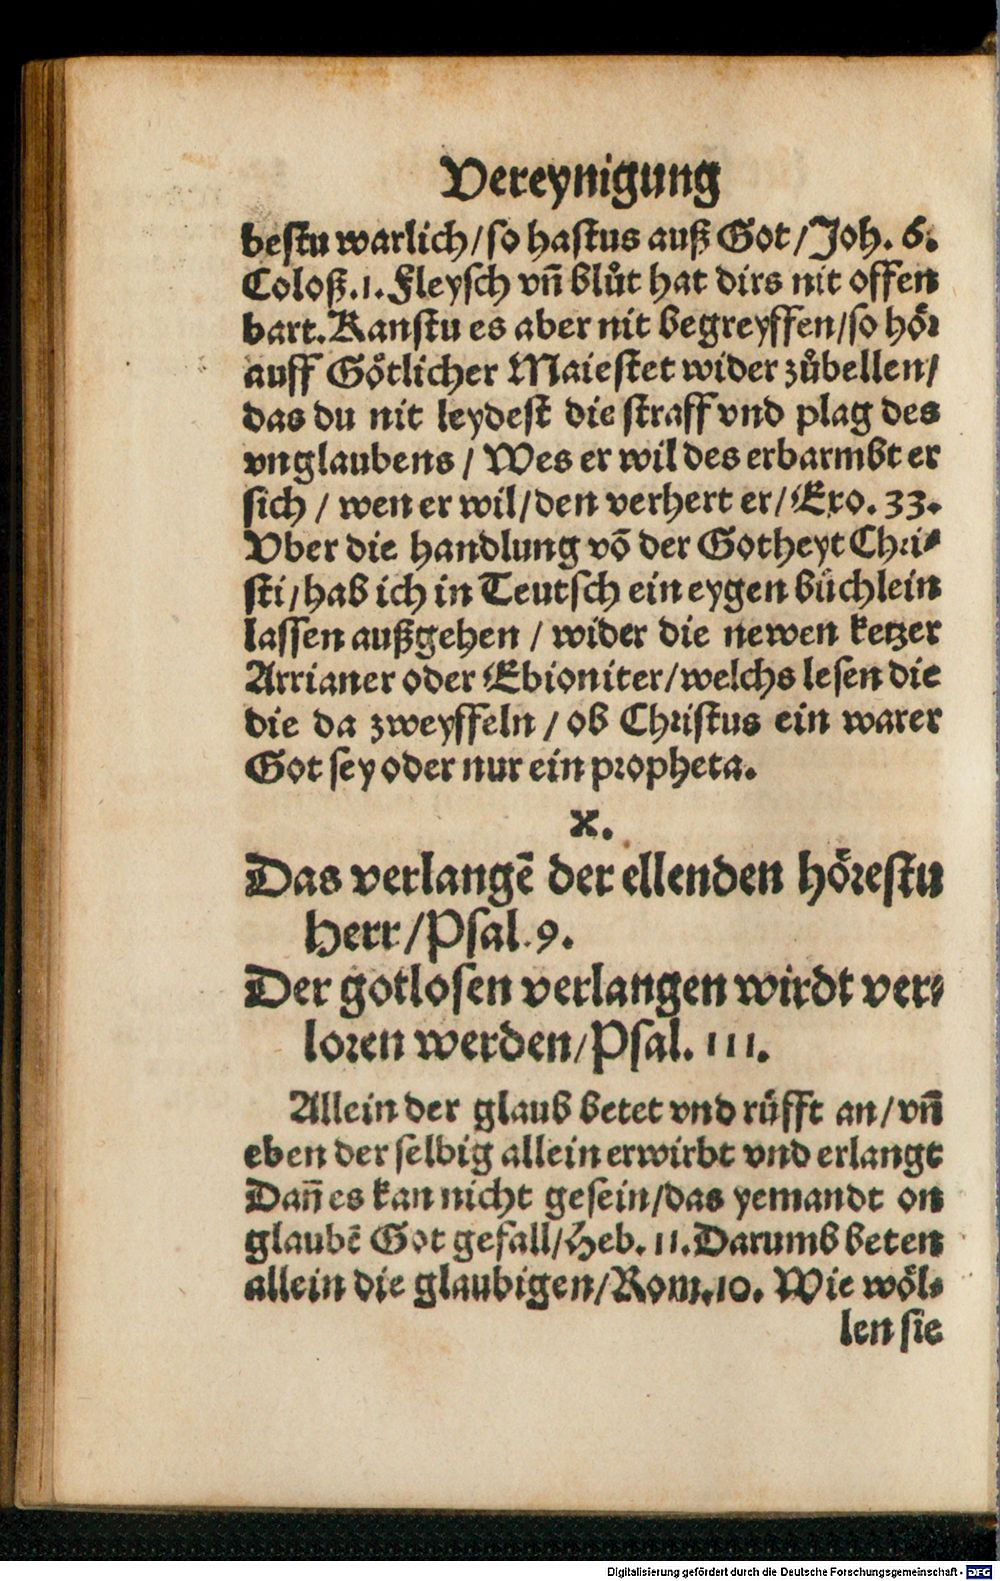 Vereynigung
bestu warlich/so hastus auß Got/Joh. 6.
Coloß.1. Fleysch vñ blůt hat dirs nit offen
bart. Kanstu es aber nit begreyffen/so hoͤr
auff Goͤtlicher Maiestet wider zůbellen/
das du nit leydest die straff vnd plag des
vnglaubens / Wes er wil des erbarmbt er
sich / wen er wil/den verhert er/Exo. 33.
Vber die handlung võ der Gotheyt Chri⸗
sti/hab ich in Teutsch ein eygen bůchlein
lassen außgehen / wider die newen ketzer
Arrianer oder Ebioniter/welchs lesen die
die da zweyffeln / ob Christus ein warer
Got sey oder nur ein propheta.
X.
Das verlangẽ der ellenden hoͤrestu
Herr/Psal.9.
Der gotlosen verlangen wirdt ver⸗
loren werden/Psal. 111.
Allein der glaub betet vnd růfft an/vñ
eben der selbig allein erwirbt vnd erlangt
Dañ es kan nicht gesein/das yemandt on
glaubẽ Got gefall/Heb. 11. Darumb beten
allein die glaubigen/Rom.10. Wie woͤl⸗
len sie
Digitalisierung gefördert durch die Deutsche Forschungsgemeinschaft - DFG